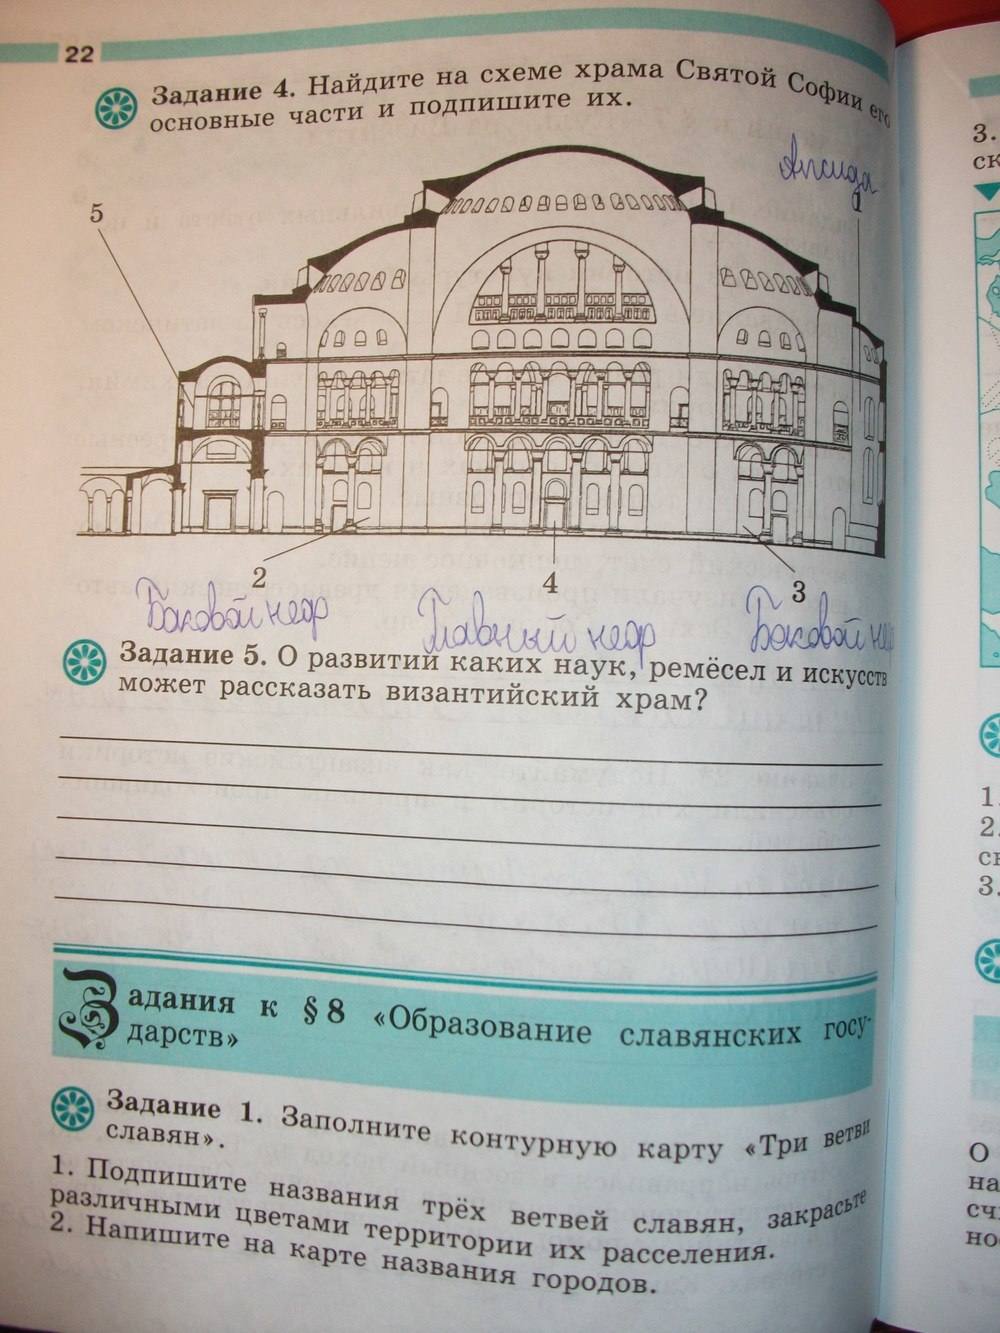 22
Задание 4. Найдите на схеме храма Святой Софии его
основные части и подпишите их.
Апсида
5
1
2
4
3
Боковой неф
Главный неф
Боковой неф
Задание 5. О развитии каких наук, ремёсел и искусств
может рассказать византийский храм?
Задания к § 8 «Образование славянских госу-
дарств»
Задание 1. Заполните контурную карту «Три ветви
славян».
1. Подпишите названия трёх ветвей славян, закрасьте
различными цветами территории их расселения.
2. Напишите на карте названия городов.
3.
ск
1.
2.
ск
3.
О
на
сч
но